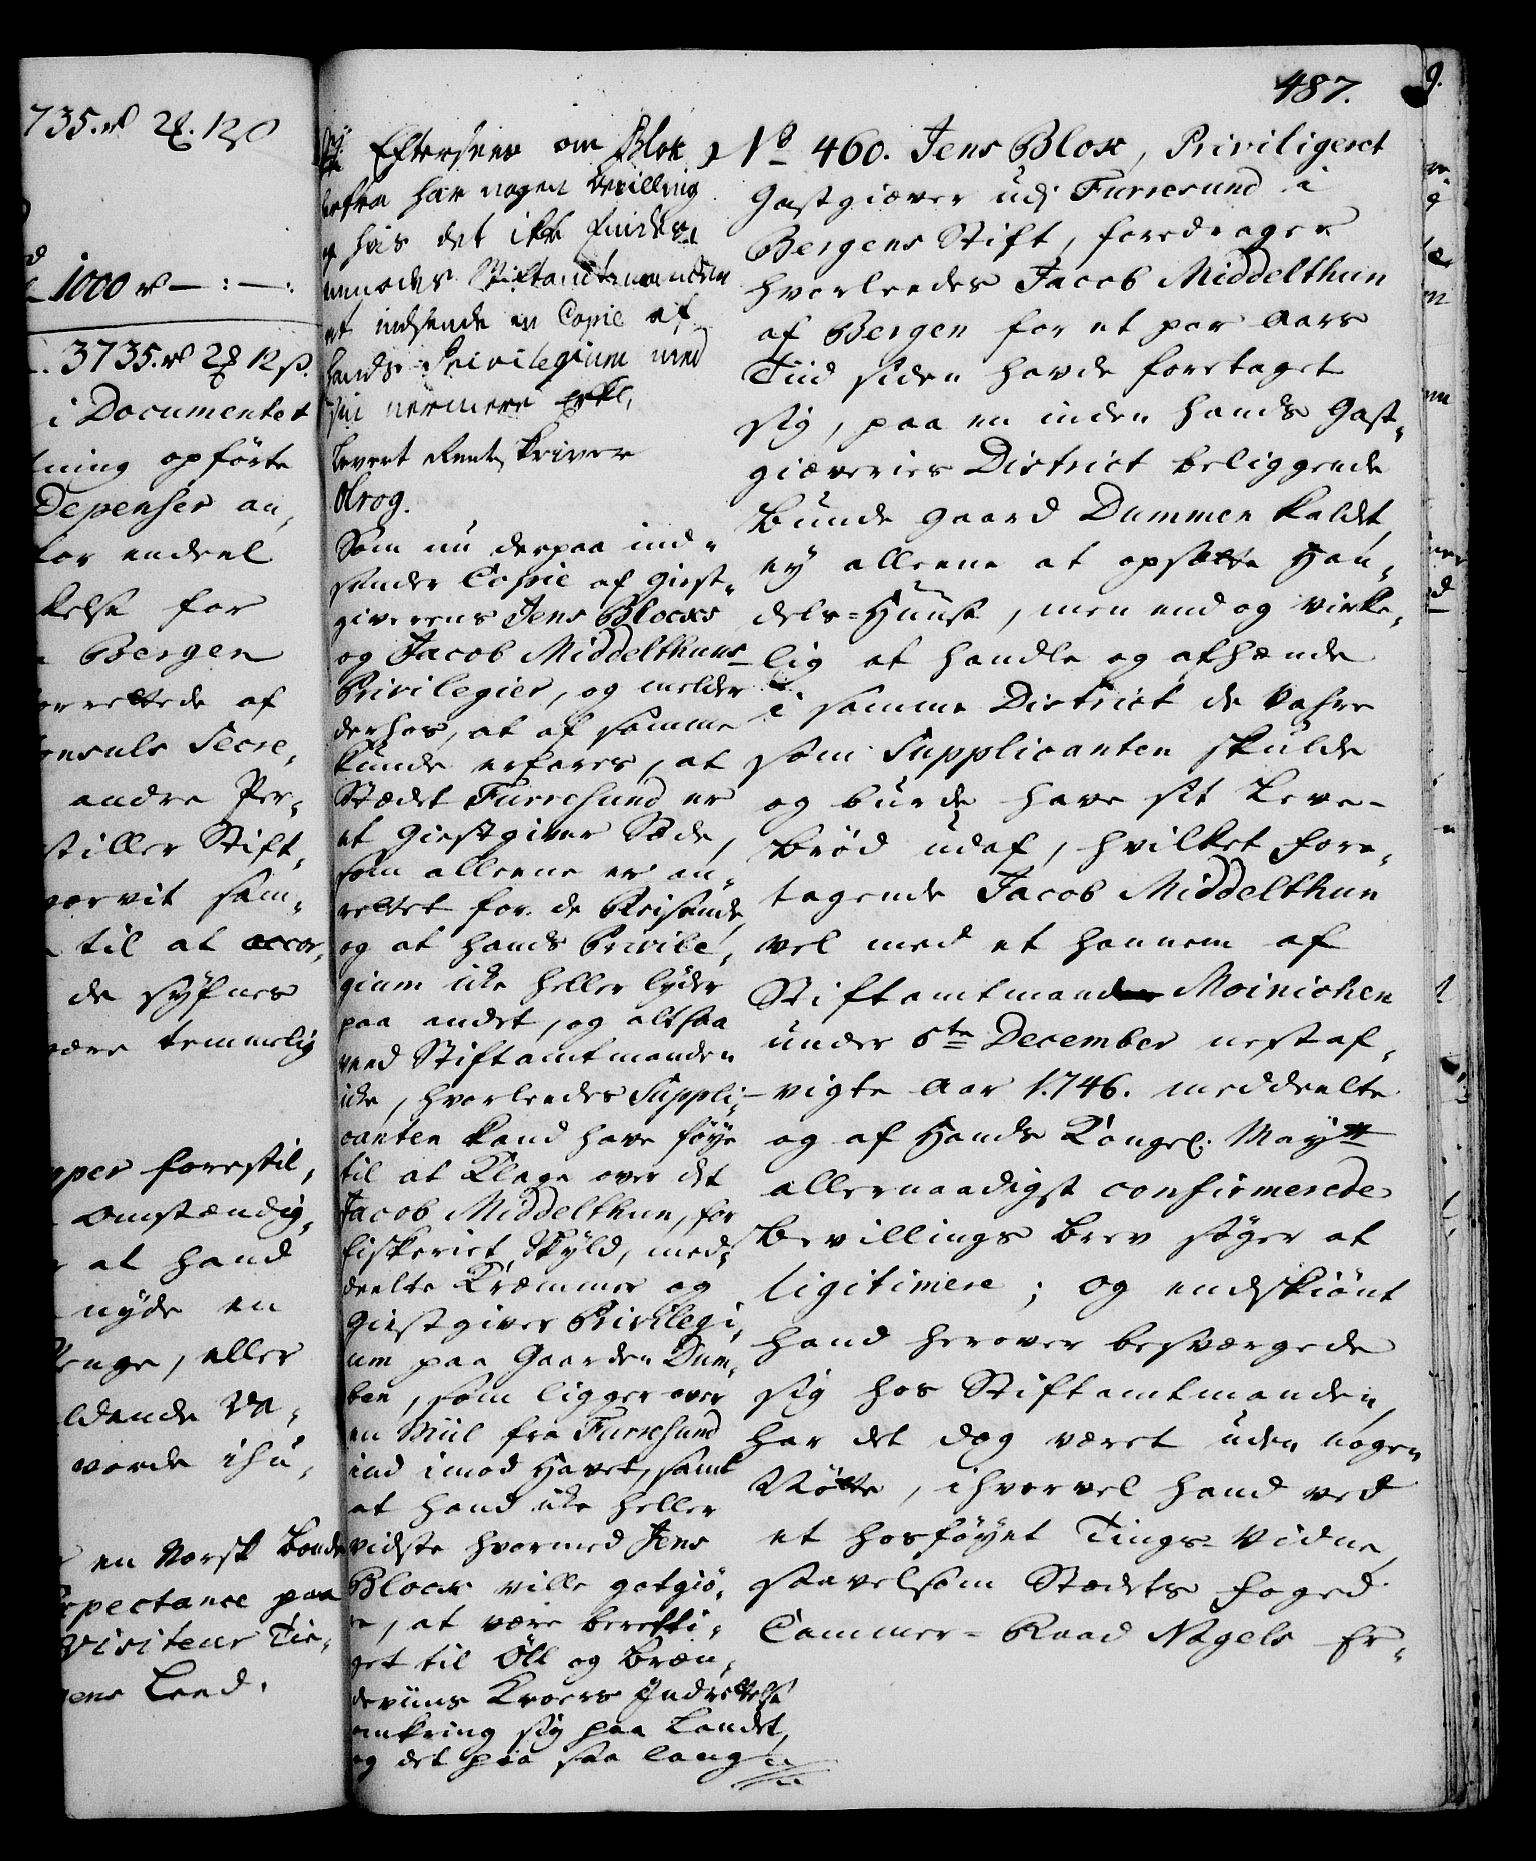 487.
735. 2. 12
1000 — : — :
3735. 2 12 ß.
i Documentet
ning opførte
Depenser an,
for endeel
kelse for
Bergen
rrettede af
onsuls Secre,
andre Per,
stiller Stift,
sam,
til at accor,
de
være temmelig
forestil,
Omstændig,
at hand
nÿde en
Penge, eller
ldende
vorde ihu,
en Norsk Bonde
xpectance paa
Visiteur
Land.
Efterseer om Blok
herfra har nogen bevilling
og hvis det ikke findes,
anmodes Stiftamtmanden
at indsende en Copie af
hands Privilegium med
sin nermere Erkl.
Levert Rentskriver
Olrog.
Som nu derpaa ind,
sender Copie af giest,
giverens Jens Blocks
og Jacob Middelthuns
Privilegier, og melder
derhos, at af samme
kunde erfares, at
Stædet Furresund er
et Giestgiver Sæde,
som alleene er an,
rettet for de Reisende,
og at hands Privile,
gium ikke heller lyder
paa andet, og altsaa
veed Stiftamtmanden
ikke, hvorleedes Suppli,
canten kand have føye
til at Klage over det
Jacob Middelthun, for
fiskeriet Skyld, med,
deelte Kræmmer og
Giestgiver Privilegi,
um paa Gaarden Dum,
ben, som ligger over
en Miil fra Furresund
ind imod Havet, samt
at hand ikke heller
vidste hvormed Jens
Block ville gotgiø,
re, at være beretti,
get til Öll og Bræn,
deviins Kroers Indrettelse
omkring sig paa Landet,
og det paa saa lang
No 460. Jens Blox, Priviligeret
Gastgiæver udj Furresund i
Bergens Stift, foredrager
hvorleedes Jacob Middelthun
af Bergen for et par Aars
Tiid siden havde foretaget
sig, paa en inden hands Gast,
giæveries District beliggende
Bunde gaard Dummen kaldet,
ey alleene at opsætte Han,
dels=Huuse, men end og virke,
lig at handle og afhænde
i samme District de Vahre
som Supplicanten skulde
og burde have sit Leve-
brød udaf, hvilket fore,
tagende Jacob Middelthun
vel med et hannem af
Stiftamtmand Moinichen
under 6te December nestaf,
vigte Aar 1746. meddeelte
og af Hands Kongel. Mayts
allernaadigst confirmerede
Bevillings brev søger at
ligitimere; og endskiønt
hand herover besværgede
sig hos Stiftamtmanden,
har det dog været uden nogen
Nötte, ihvorvel hand ved
et hosføyet Tings=Vidne,
saavelsom Stædets Foged
Cammer=Raad Nagels Er,